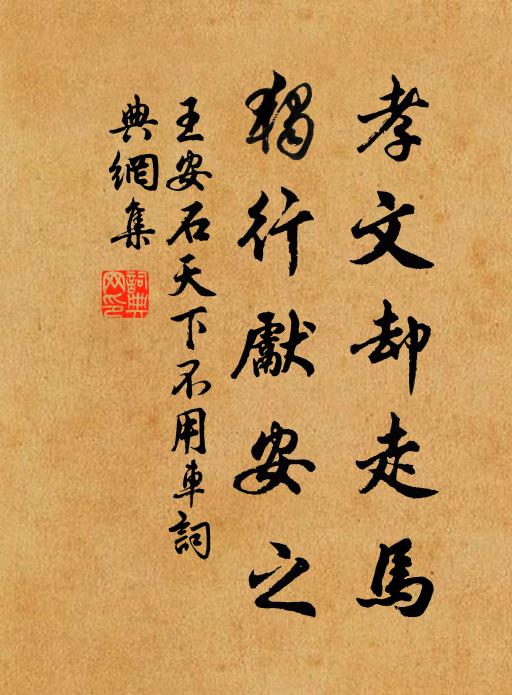 孝文却走馬
獨行獻安之
王安石天下不用車詞
典網集
詞典
網印